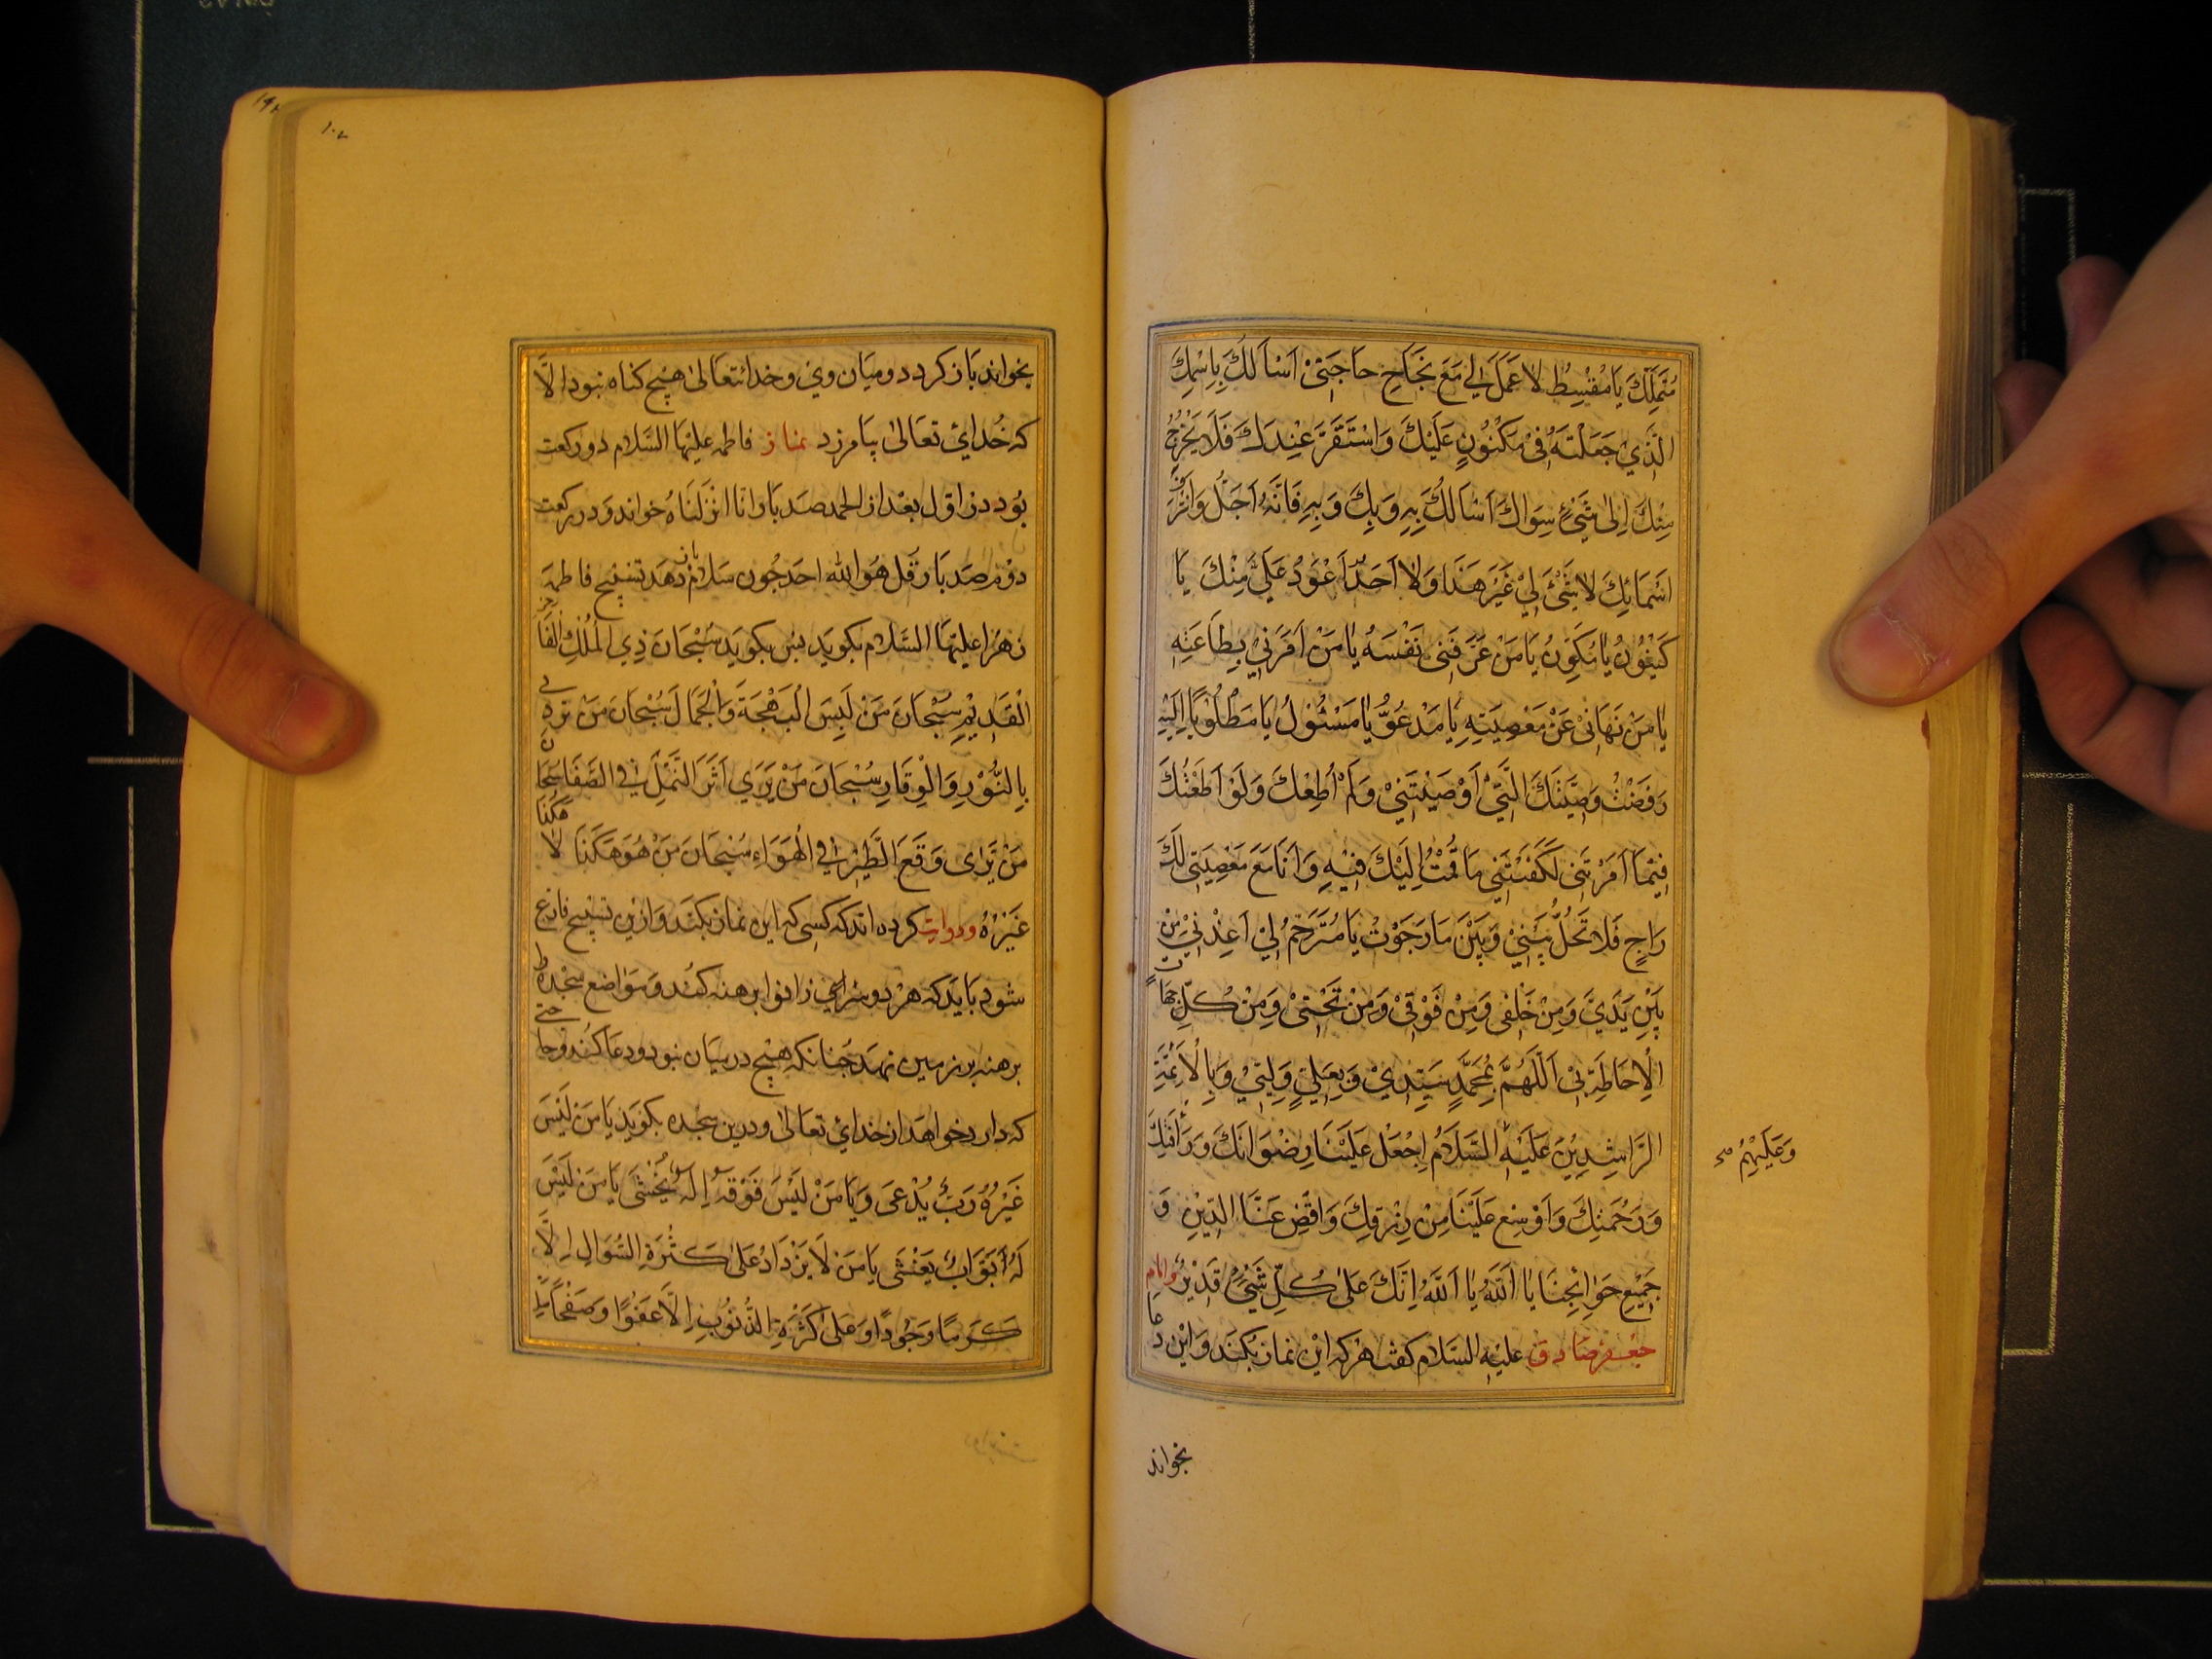 مُتَمَلِّكَ يَا مُقْسِطُ لَا عَمَلَ لِي مَعَ نَجَاحِ حَاجَتِيْ اَسْاَلُكَ بِاِسْمِكَ
الَّذِيْ جَعَلْتَهُ فِيْ مَكْنُوْنٍ عَلَيْكَ وَاسْتَقَرَّ عِنْدَكَ فَلَا يَخْرُجُ
مِنْكَ اِلٰى شَيْءٍ سِوَاكَ اَسْاَلُكَ بِهِ وَبِكَ وَبِهِ فَاِنَّهُ اَجَلُّ وَاَشْرَفُ
اَسْمَائِكَ لَا شَيْءَ لِيْ غَيْرَ هَذَا وَلَا اَحَدًا اَعْوَدُ عَلَيَّ مِنْكَ يَا
كَيْنُوْنُ يَا مُكَوِّنُ يَا مَنْ عَرَّفَنِى نَفْسَهُ يَا مَنْ اَمَرَنِيْ بِطَاعَتِهِ
يَا مَنْ نَهَانِيْ عَنْ مَعْصِيَتِهِ يَا مَدْعُوُّ يَا مَسْئُوْلُ يَا مَطْلُوْبًا اِلَيْهِ
رَفَضْتُ وَصِيَّتَكَ الَّتِيْ اَوْصَيْتَنِيْ وَلَمْ اُطِعْكَ وَلَوْ اَطَعْتُكَ
فِيْمَا اَمَرْتَنِى لَكَفَيْتَنِي مَا قُمْتُ اِلَيْكَ فِيْهِ وَاَنَا مَعَ مَعْصِيَتِى لَكَ
رَاجٍ فَلَا تَحُلْ بَيْنِيْ وَبَيْنَ مَا رَجَوْتُ يَا مُتَرَحِّمُ لِيْ اَعِذْنِيْ مِنْ
بَيْنِ يَدَيَّ وَمِنْ خَلْفِى وَمِنْ فَوْقِيْ وَمِنْ تَحْتِيْ وَمِنْ كُلِّ جِهَاتِ
الْاِحَاطَةِ بِيْ اَللّٰهُمَّ بِمُحَمَّدٍ سَيِّدِيْ وَبِعَلِيٍّ وَلِيِّيْ وَبِالْاَئِمَّةِ
الرَّاشِدِيْنَ عَلَيْهِ السَّلَامُ اِجْعَلْ عَلَيْنَا رِضْوَانَكَ وَرَأْفَتَكَ
وَعَلَيْهِمُ
وَرَحْمَتِكَ وَاَوْسِعْ عَلَيْنَا مِنْ رِزْقِكَ وَاقْضِ عَنَّا الدَّيْنِ وَ
جَمِيْعِ حَوَائِجِنَا يَا اَللّٰهُ يَا اَللّٰهُ اِنَّكَ عَلٰى كُلِّ شَيْءٍ قَدِيْرٌ وامام
جعفر صادق علیه السلام کفت هر که این نماز بکند و این دعا
بخواند
بخواند باز کردد و میان وی و خدایتعالی هیچ کناه نبود الا
که خدای تعالی بیامرزد نماز فاطمه علیها السلام دو رکعت
بود در اول بعد از الحمد صد بار انا انزلناه خواند و در رکعت
دوم صد بار قل هو الله احد چون سلام باز دهد تسبیح فاطمه
زهرا علیها السلام بکوید پس بکوید سُبْحَانَ ذِي الْمُلْكِ الْفَاخِرِ
الْقَدِيْمِ سُبْحَانَ مَنْ لَبِسَ الْبَهْجَةَ وَالْجَمَالَ سُبْحَانَ مَنْ تَرَدّٰى
بِالنُّوْرِ وَالْوِقَارِ سُبْحَانَ مَنْ يَرٰى اَثَرَ النَّمْلِ فِي الصَّفَا سُبْحَانَ
مَنْ يَرٰى وَقْعَ الطَّيْرِ فِي الْهَوَاءِ سُبْحَانَ مَنْ هُوَ هَكَذَا لَا هَكَذَا
غَيْرُهُ و روایت کرده اند که کسی که این نماز بکند و از این تسبیح فارغ
شود باید که هر دو سرای زانو برهنه کند و مواضع سجده
برهنه بر زمین نهد چنانکه هیچ در میان نبود و دعا کند و حاجتی
که دارد بخواهد از خدای تعالی و درین سجده بکوید يَا مَنْ لَيْسَ
غَيْرُهُ رَبٌّ يُدْعَى وَيَا مَنْ لَيْسَ فَوْقَهُ اِلَهٌ يُخْشَى يَا مَنْ لَيْسَ
لَهُ اَبْوَابٌ يَغْشَى يَا مَنْ لَا يَزْدَادُ عَلٰى كَثْرَةِ السُّوَالِ اِلَّا
كَرَمًا وَجُوْدًا وَعَلٰى كَثْرَةِ الذُّنُوْبِ اِلَّا عَفْوًا وَصَفْحًا